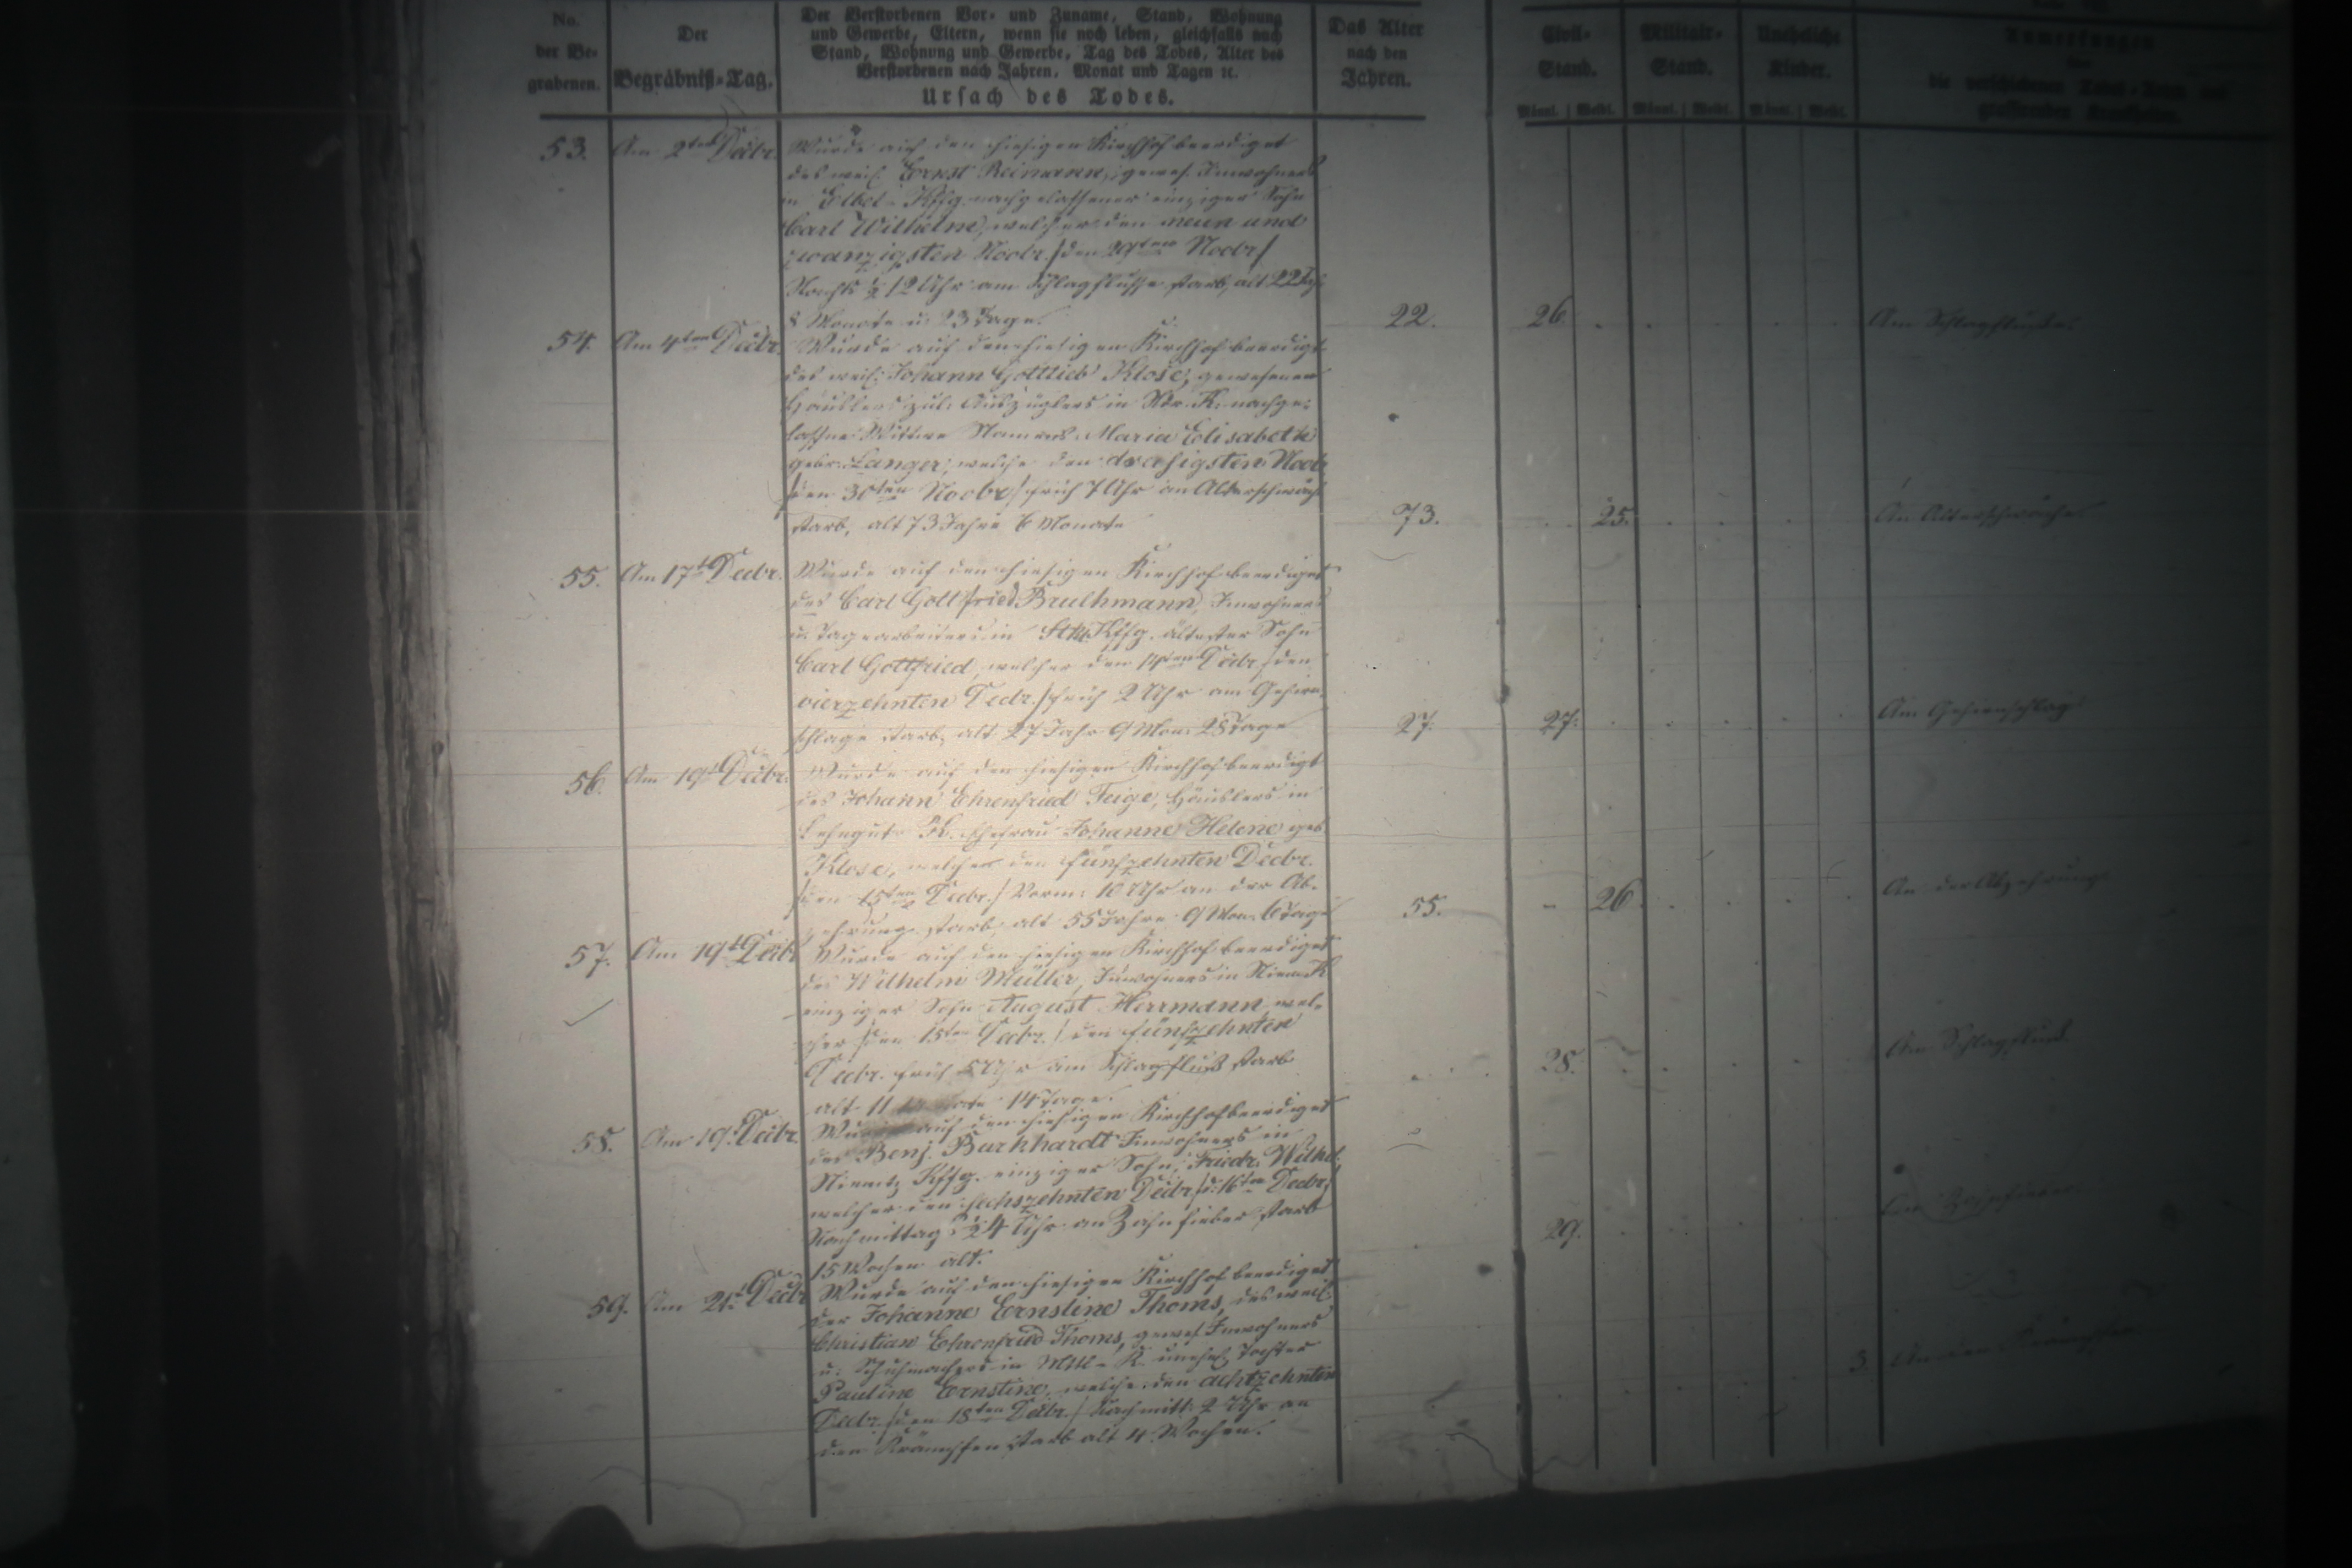 No.
der Be-
grabenen.
Der
Begräbniß-Tag.
Der Verstorbenen Vor- und Zuname, Stand, Wohnung
und Gewerbe, Eltern, wenn sie noch leben, gleichfalls nach
Stand, Wohnung und Gewerbe, Tag des Todes, Alter des
Verstorbenen nach Jahren, Monat und Tagen ꝛc.
Ursach des Todes.
Das Alter
nach den
Jahren.
Civil-
Stand.
Männl. Weibl.
Militair-
Stand.
Männl. Weibl.
Uneheliche
Kinder.
Männl. Weibl.
Anmerkungen
über
die verschiedenen Todes-Arten und
grassirenden Krankheiten.
53. Am 2ten Decbr. Wurde auf den hiesigen Kirchhof beerdiget
des weil. Ernst Reimann, gewes. Inwohners
in Elbel-Kffg. nachgelassener einziger Sohn
Carl Wilhelm, welcher den neun und
zwanzigsten Novbr. /den 29ten Novbr/
Nachts ½ 12 Uhr am Schlagflusse starb, alt 22 J.
8 Monate u. 23 Tage. 22. 26. Am Schlagflusse.
54. Am 4ten Decbr. Wurde auf den hiesigen Kirchhof beerdigt
des weil. Johann Gottlieb Klose, gewesenen
Häuslers zul. Auszüglers in Ndr. K. nachge-
lassne Wittwe Namens Maria Elisabeth
gebr. Langer, welche den dreißigsten Novbr
/den 30ten Novbr/ früh 7 Uhr an Altersschwäche
starb, alt 73 Jahre 6 Monate 73. 25. An Altersschwäche.
55. Am 17t Decbr. Wurde auf den hiesigen Kirchhof beerdiget
des Carl Gottfried Brulhmann, Inwohners
u. Tagearbeiters in Kffg. ältester Sohn
Carl Gottfried, welcher den 14ten Decbr. /den
vierzehnten Decbr./ früh 2 Uhr am Gehirn-
schlage starb, alt 27 Jahr 9 Mon. 28 Tage 27. 27. Am Gehirnschlag.
56. Am 19t Decbr. Wurde auf den hiesigen Kirchhof beerdigt
des Johann Ehrenfried Feige, Häuslers in
Lehngut K. Ehefrau Johanne Helene geb.
Klose, welche den fünfzehnten Decbr.
/den 15ten Decbr./ Vorm. 10 Uhr an der Ab-
zehrung starb, alt 55 Jahre 9 Mon. 6 Tage 55. 26. An der Abzehrung.
57. Am 19t Decbr Wurde auf den hiesigen Kirchhof beerdiget
des Wilhelm Müller, Inwohners in K
einziger Sohn August Herrmann, wel-
cher /den 15ten Decbr./ den fünfzehnten
Decbr. früh 5 Uhr am Schlagfluß starb
alt 11 Monate 14 Tage. 28. Am Schlagfluß
58. Am 19t Decbr. Wurde auf den hiesigen Kirchhof beerdiget
des Benj. Burkhardt Inwohners in
Kffg. einziger Sohn, Friedr. Wilhel.
welcher den sechszehnten Decbr /d. 16ten Decbr/
Nachmittag ½ 4 Uhr an Zahnfieber starb
15 Wochen alt. 29.
59. Am 21t Decbr Wurde auf den hiesigen Kirchhof beerdiget
der Johanne Ernstine Thoms, des weil.
Christian Ehrenfried Thoms, gewes. Inwohners
u. Schuhmachers in Mttl-K. unehel. Tochter
Pauline Ernstine, welche den achtzehnten
Decbr. /den 18ten Decbr./ Nachmitt. 2 Uhr an
den Krämpfen starb alt 4 Wochen. 3. An den Krämpfen